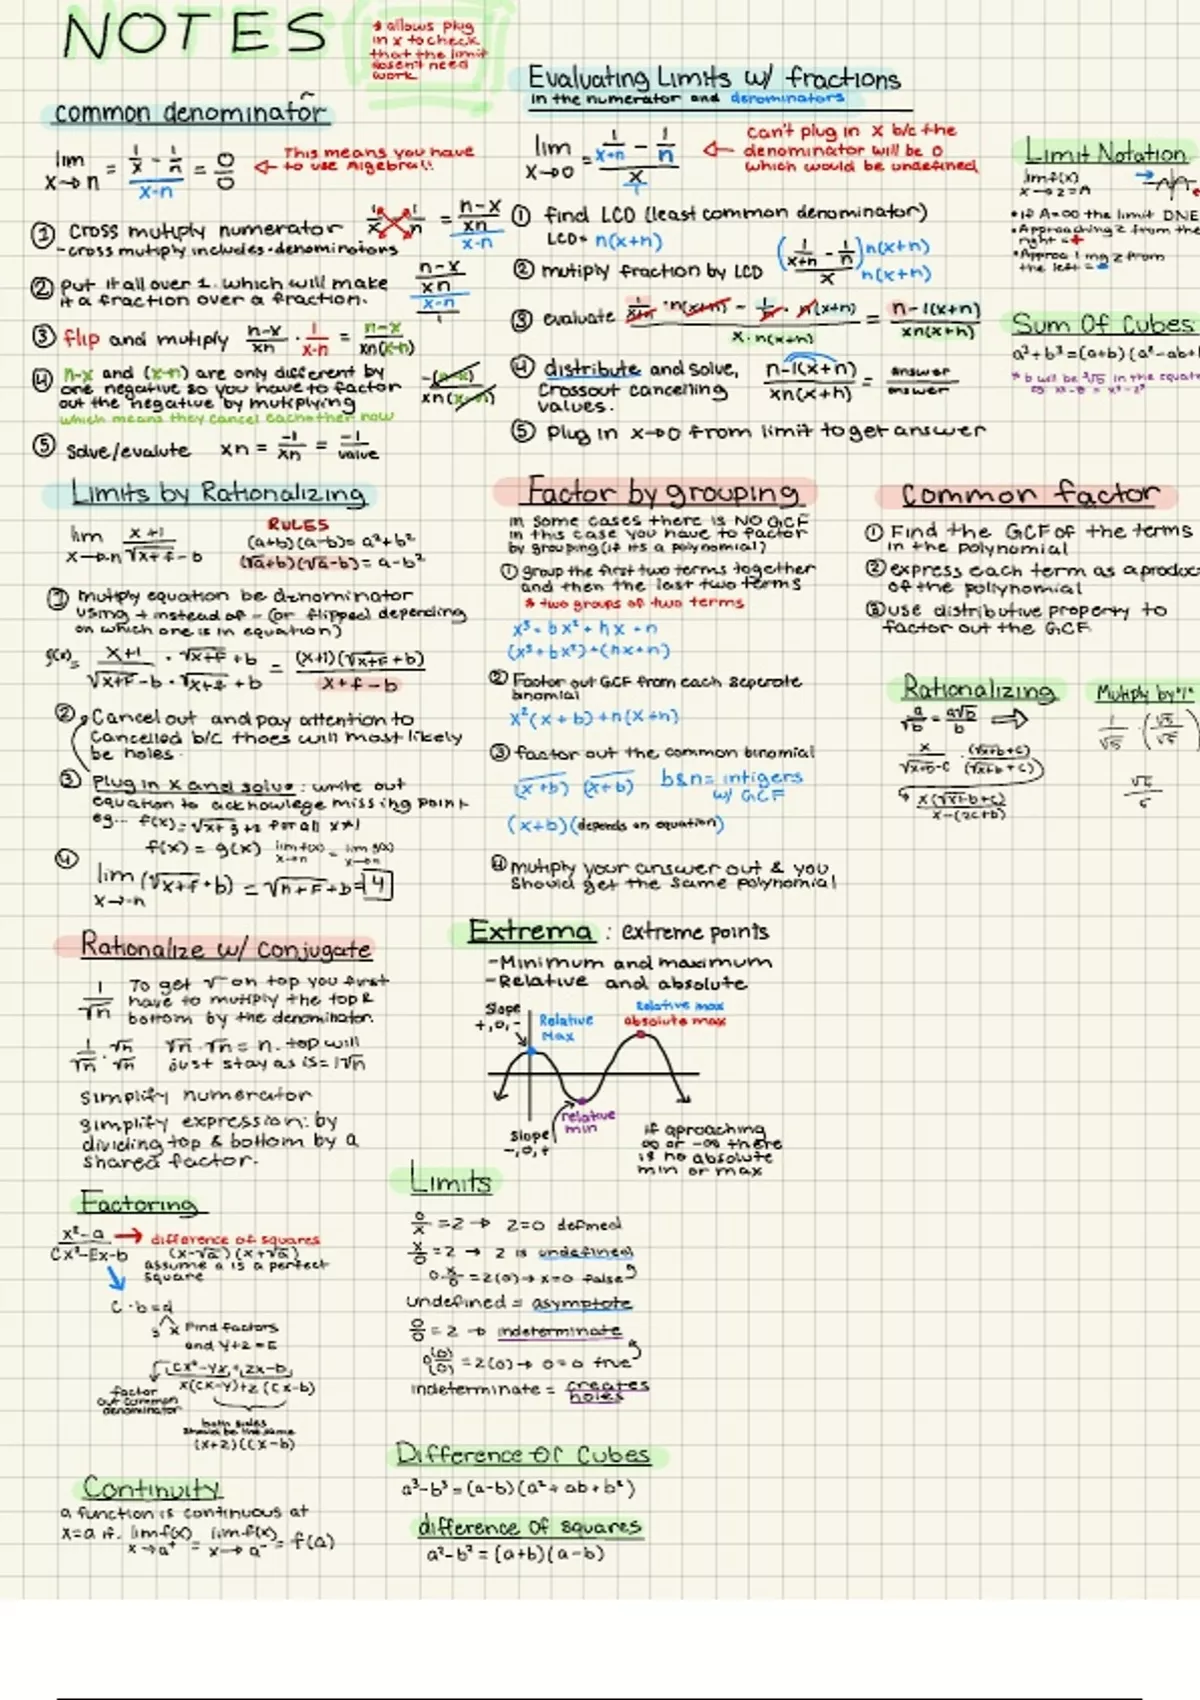 NOTES
* allows plug
in x to check
that the limit
doesn't need
work
common denominator
lim x→n = (1/x - 1/n)/(x-n) = 0/0
This means you have
to use Algebra!!
① Cross multiply numerator 1/x 1/n = ((n-x)/xn)/(x-n)
-cross mutiply includes denominators
② put it all over 1. which will make
it a fraction over a fraction.
((n-x)/xn)/((x-n)/1)
③ flip and mutiply (n-x)/xn · 1/(x-n) = (n-x)/(xn(x-n))
④ n-x and (x-n) are only different by
one negative so you have to factor
out the negative by mutiplying
which means they cancel eachother now
⑤ solve/evalute xn = -1/xn = -1/value
Evaluating Limits w/ fractions
in the numerator and denominators
lim x→0 = (1/(x+n) - 1/n)/x
can't plug in x b/c the
denominator will be 0
which would be undefined
① find LCD (least common denominator)
LCD= n(x+n)
② mutiply fraction by LCD ((1/(x+n) - 1/n)/x) n(x+n)/n(x+n)
③ evaluate 1/(x+n) · n(x+n) - 1/n · n(x+n) / x·n(x+n) = (n-1(x+n))/(xn(x+n))
④ distribute and solve,
Crossout cancelling
values.
(n-1(x+n))/(xn(x+n)) = answer/answer
⑤ Plug in x→0 from limit to get answer
Limit Notation
lim f(x)
x→2=A
• If A=∞ the limit DNE
• Approaching 2 from the
right = +
the left = -
Sum Of Cubes
Limits by Rationalizing
lim x→-n (x+1)/(√x+f - b)
RULES
(a+b)(a-b)= a²+b²
(√a+b)(√a-b)= a-b²
① mutiply equation be denominator
using + instead of - (or flipped depending
on which one is in equation)
g(x)= (x+1)/(√x+f - b) · (√x+f + b)/(√x+f + b) = ((x+1)(√x+f + b))/(x+f-b)
② Cancel out and pay attention to
Cancelled b/c thoes will most likely
be holes.
③ Plug in x and solve: write out
equation to acknowlege missing point
eg... f(x)=√x+3+2 for all x≠1
f(x) = g(x) lim f(x) x→n = lim g(x) x→n
④ lim x→-n (√x+f + b) = √n+f + b = 4
Factor by grouping
in some cases there is NO GCF
in this case you have to factor
by grouping (if its a polynomial)
① group the first two terms together
and then the last two terms
* two groups of two terms
x³+bx²+nx+n
(x³+bx²)+(nx+n)
② Factor out GCF from each seperate
binomial
x²(x+b)+n(x+n)
③ factor out the common binomial
(x+b) (x+b) b&n= intigers
w/ GCF
(x+b)(depends on equation)
④ mutiply your answer out & you
should get the same polynomial
Common factor
① Find the GCF of the terms
in the polynomial
② express each term as a produc
of the polynomial
③ use distributive property to
factor out the GCF
Rationalizing
a/√b = a√b/b
x/(√x+b-c) · (√x+b+c)/(√x+b+c)
x(√x+b+c)
Mutiply by "1"
Rationalize w/ conjugate
1/√n
To get √ on top you first
have to mutiply the top &
bottom by the denominator.
1/√n · √n/√n
√n·√n= n. top will
just stay as is= 1√n
simplify numerator
simplify expression: by
dividing top & bottom by a
shared factor.
Extrema : extreme points
-Minimum and maximum
-Relative and absolute
Slope
+,0,-
Relative
Max
Relative max
absolute max
relative
min
Slope
-,0,+
if aproaching
∞ or -∞ there
is no absolute
min or max
Factoring
(x²-a)/(Cx²-Ex-b) → difference of squares
(x-√a)(x+√a)
assume a is a perfect
square
C·b=d
Find factors
and y+z=E
Cx²-yx+zx-b
x(cx-y)+z(cx-b)
factor
out common
denominator
both sides
should be the same
(x+z)(cx-b)
Limits
0/x =2 → 2=0 defined
x/0 =2 → 2 is undefined
0·x/0 =2(0)→ x=0 false
undefined = asymptote
0/0 =2 → indeterminate
0(0/0) =2(0)→ 0=0 true
indeterminate = creates
holes
Continuity
a function is continuous at
x=a if. lim f(x) x→a⁺ = lim f(x) x→a⁻ = f(a)
Difference Of Cubes
a³-b³=(a-b)(a²+ab+b²)
difference of squares
a²-b²=(a+b)(a-b)